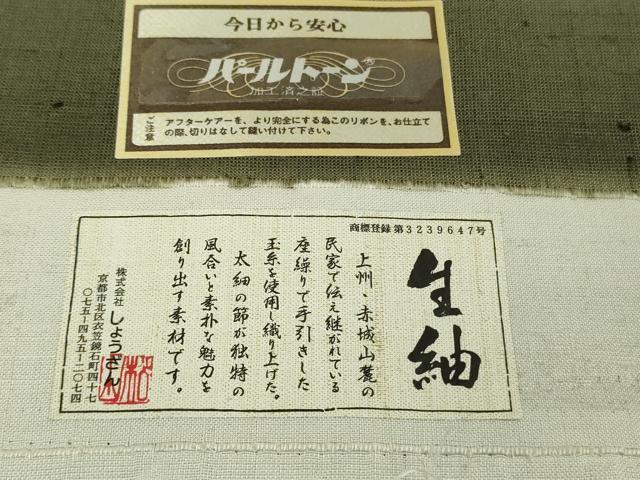 今日から安心
パールトーン®
加工済之証
ご注意
アフターケアーを、より完全にする為このリボンを、お仕立て
の際、切りはなして縫い付けて下さい。
商標登録 第3239647号
生紬
上州・赤城山麓の
民家で伝え継がれている
座繰りで手引きした
玉糸を使用し織り上げた。
太細の節が独特の
風合いと素朴な魅力を
創り出す素材です。
株式会社 しょうざん
京都市北区衣笠鏡石町四十七
〇七五-四九五-二〇七四